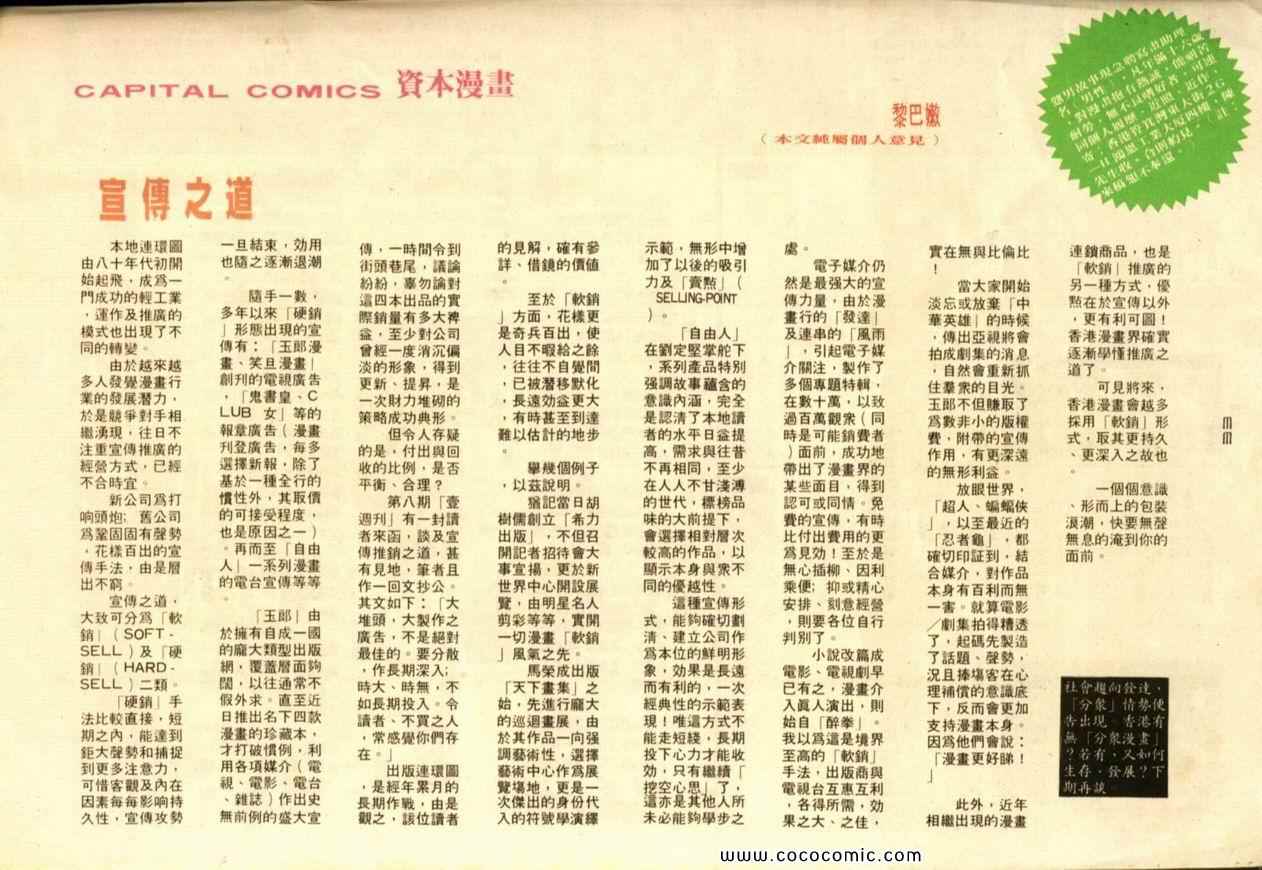 CAPITAL COMICS 資本漫畫
黎巴嫩
（本文純屬個人意見）
宣傳之道
本地連環圖
由八十年代初開
始起飛，成爲一
門成功的輕工業
，運作及推廣的
模式也出現了不
同的轉變。
由於越來越
多人發覺漫畫行
業的發展潛力，
於是競爭對手相
繼湧現，往日不
注重宣傳推廣的
經營方式，已經
不合時宜。
新公司爲打
响頭炮；舊公司
爲鞏固固有聲勢
，花樣百出的宣
傳手法，由是層
出不窮。
宣傳之道，
大致可分爲「軟
銷」（SOFT-
SELL）及「硬
銷」（HARD-
SELL）二類。
「硬銷」手
法比較直接，短
期之內，能達到
鉅大聲勢和捕捉
到更多注意力，
可惜客觀及內在
因素每每影响持
久性，宣傳攻勢
一旦結束，効用
也隨之逐漸退潮
。
隨手一數，
多年以來「硬銷
」形態出現的宣
傳有：「玉郎漫
畫、笑旦漫畫」
創刋的電視廣告
，「鬼書皇、C
LUB 女」等的
報章廣告（漫畫
刋登廣告，每多
選擇新報，除了
基於一種全行的
慣性外，其取價
的可接受程度，
也是原因之一）
。再而至「自由
人」一系列漫畫
的電台宣傳等等
。
「玉郎」由
於擁有自成一國
的龐大類型出版
網，覆蓋層面夠
闊，以往通常不
假外求。直至近
日推出名下四款
漫畫的珍藏本，
才打破慣例，利
用各項媒介（電
視、電影、電台
、雜誌）作出史
無前例的盛大宣
傳，一時間令到
街頭巷尾，議論
紛紛，辜勿論對
這四本出品的實
際銷量有多大裨
益，至少對公司
曾經一度消沉偏
淡的形象，得到
更新、提昇，是
一次財力堆砌的
策略成功典形。
但令人存疑
的是，付出與回
收的比例，是否
平衡、合理？
第八期「壹
週刋」有一封讀
者來函，談及宣
傳推銷之道，甚
有見地，筆者且
作一回文抄公。
其文如下：「大
堆頭，大製作之
廣告，不是絕對
最佳的。要分散
，作長期深入；
時大、時無，不
如長期投入。令
讀者、不買之人
，常感覺你們存
在。」
出版連環圖
，是經年累月的
長期作戰，由是
觀之，該位讀者
的見解，確有參
詳、借鏡的價値
。
至於「軟銷
」方面，花樣更
是奇兵百出，使
人目不暇給之餘
，往往不自覺間
，已被潛移默化
，長遠効益更大
，有時甚至到達
難以估計的地步
。
舉幾個例子
，以茲說明。
猶記當日胡
樹儒創立「希力
出版」，不但召
開記者招待會大
事宣揚，更於新
世界中心開設展
覽，由明星名人
剪彩等等，實開
一切漫畫「軟銷
」風氣之先。
馬榮成出版
「天下畫集」之
始，先進行龐大
的巡迴畫展，由
於其作品一向强
調藝術性，選擇
藝術中心作爲展
覽塲地，更是一
次傑出的身份代
入的符號學演繹
示範，無形中增
加了以後的吸引
力及「賣㸃」（
SELLING-POINT
）。
「自由人」
在劉定堅掌舵下
，系列產品特別
强調故事蘊含的
意識內涵，完全
是認清了本地讀
者的水平日益提
高，需求與往昔
不再相同，至少
在人人不甘淺薄
的世代，標榜品
味的大前提下，
會選擇相對層次
較高的作品，以
顯示本身與衆不
同的優越性。
這種宣傳形
式，能夠確切劃
淸、建立公司作
爲本位的鮮明形
象，效果是長遠
而有利的，一次
經典性的示範表
現！唯這方式不
能走短綫，長期
投下心力才能收
効，只有繼續「
挖空心思」了，
這亦是其他人所
未必能夠學步之
處。
電子媒介仍
然是最强大的宣
傳力量，由於漫
畫行的「發達」
及連串的「風雨
」，引起電子媒
介關注，製作了
多個專題特輯，
在數十萬，以致
過百萬觀衆（同
時是可能銷費者
）面前，成功地
帶出了漫畫界的
某些面目，得到
認可或同情。免
費的宣傳，有時
比付出費用的更
爲見効！至於是
無心插柳、因利
乘便；抑或精心
安排、刻意經營
，則要各位自行
判別了。
小說改篇成
電影、電視劇早
已有之，漫畫介
入眞人演出，則
始自「醉拳」。
我以爲這是境界
至高的「軟銷」
手法，出版商與
電視台互惠互利
，各得所需，効
果之大、之佳，
實在無與比倫比
！
當大家開始
淡忘或放棄「中
華英雄」的時候
，傳出亞視將會
拍成劇集的消息
，自然會重新抓
住羣衆的目光。
玉郎不但賺取了
爲數非小的版權
費，附帶的宣傳
作用，有更深遠
的無形利益。
放眼世界，
「超人、蝙蝠俠
」，以至最近的
「忍者龜」，都
確切印証到，結
合媒介，對作品
本身有百利而無
一害。就算電影
／劇集拍得糟透
了，起碼先製造
了話題、聲勢，
況且捧塲客在心
理補償的意識底
下，反而會更加
支持漫畫本身。
因爲他們會說：
「漫畫更好睇！
」
此外，近年
相繼出現的漫畫
連鎖商品，也是
「軟銷」推廣的
另一種方式，優
㸃在於宣傳以外
，更有利可圖！
香港漫畫界確實
逐漸學懂推廣之
道了。
可見將來，
香港漫畫會越多
採用「軟銷」形
式，取其更持久
、更深入之故也
。
一個個意識
、形而上的包裝
浪潮，快要無聲
無息的淹到你的
面前。
社會趨向發達，
「分衆」情勢便
告出現。香港有
無「分衆漫畫」
？若有，又如何
生存、發展？下
期再談。
www.cococomic.com